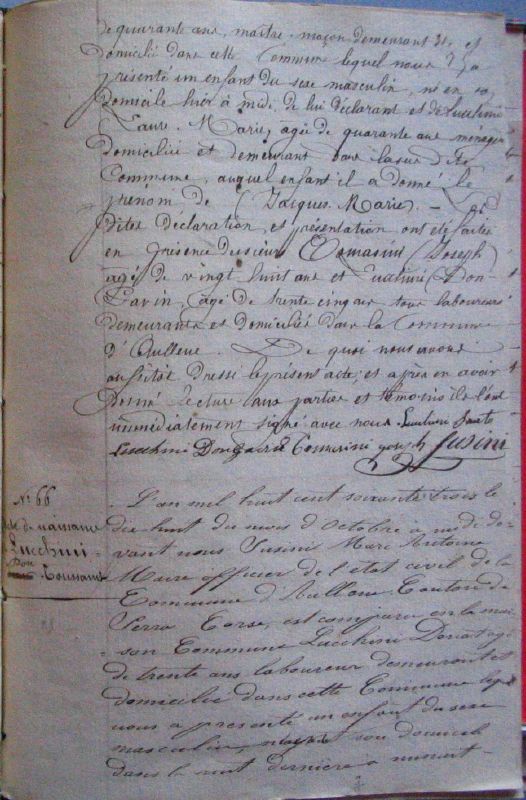 de quarante ans, maître maçon demeurant et
domicilié dans cette Commune lequel nous a
présenté un enfant du sexe masculin, né en son
domicile hier à midi de lui déclarant et de Lucchini
Laure Marie, agée de quarante ans ménagère
domiciliée et demeurant dans la susdite
Commune, auquel enfant il a donné le
prénom de Jacques Marie. Les
dites déclaration et présentation ont été faites
en présence des sieurs Tomasini Joseph
agé de vingt huit ans et Lucchini Don
Gavin, agé de trente cinq ans tous laboureurs
demeurants et domiciliés dans la Commune
d'Aullene. De quoi nous avons
aussitôt dressé le présent acte, et après en avoir
donné lecture aux parties et témoins ils l'ont
immédiatement signé avec nous. Lucchini
Lucchini Don Tomasini Susini
N° 66
Acte de naissance
Lucchini
Don
Toussaint
L'an mil huit cent soixante trois le
dix huit du mois d'Octobre à midi de-
vant nous Susini Marc Antoine
Maire officier de l'état civil de la
Commune d'Aullene Canton de
Serra Corse, est comparu en la mai-
son Commune Lucchini Donat agé
de trente ans laboureur demeurant et
domicilié dans cette Commune lequel
nous a présenté un enfant du sexe
masculin, son domicile
dans la nuit dernière à minuit